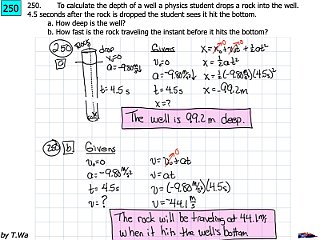 250
250. To calculate the depth of a well a physics student drops a rock into the well.
4.5 seconds after the rock is dropped the student sees it hit the bottom.
a. How deep is the well?
b. How fast is the rock traveling the instant before it hits the bottom?
250 a
Rock
drop
v₀=0
a=-9.80m/s²
t=4.5s
Givens
v₀=0
a=-9.80m/s²
t=4.5s
x=?
x=x₀+v₀t+½at²
x=½at²
x=½(-9.80m/s²)(4.5s)²
x=-99.2m
The well is 99.2m deep.
250 b Givens
v₀=0
a=-9.80m/s²
t=4.5s
v=?
v=v₀+at
v=at
v=(-9.80m/s²)(4.5s)
v=-44.1m/s
The rock will be traveling at 44.1m/s
when it hits the well's bottom
by T.Wa